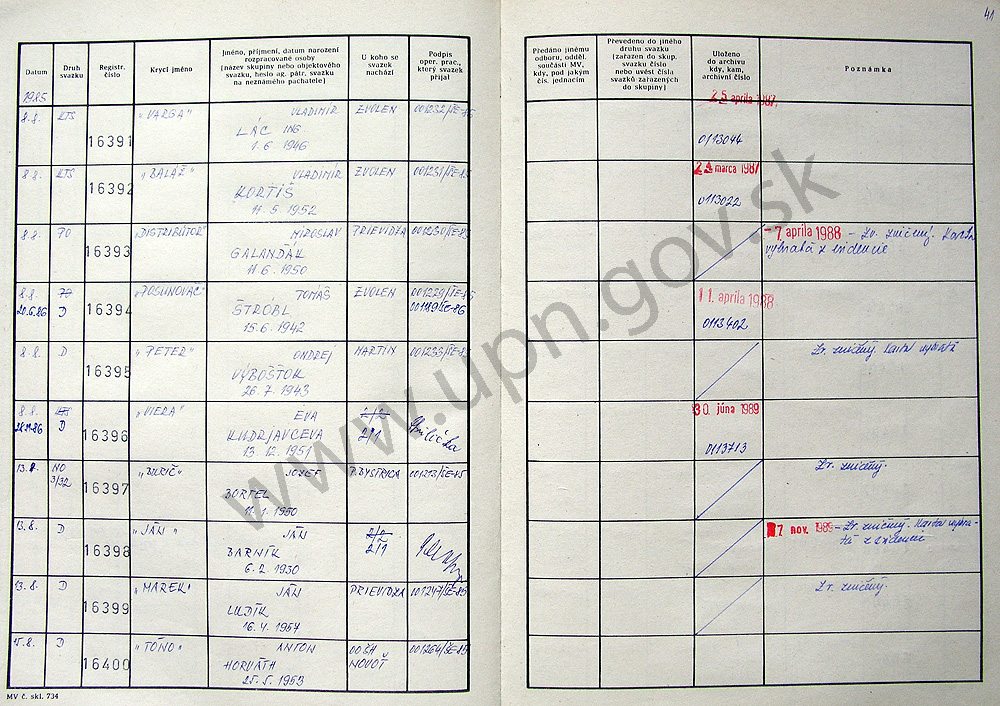 41
Datum
Druh svazku
Registr. číslo
Krycí jméno
Jméno, příjmení, datum narození
rozpracované osoby
(název skupiny nebo objektového
svazku, heslo ag. pátr. svazku
na neznámého pachatele)
U koho se
svazek
nachází
Podpis
oper. prac.,
který svazek
přijal
Předáno jinému
odboru, odděl.
součásti MV,
kdy, pod jakým
čís. jednacím
Převedeno do jiného
druhu svazku
(zařazen do skup.
svazku číslo
nebo uvést čísla
svazků zařazených
do skupiny)
Uloženo
do archivu
kdy, kam,
archivní číslo
Poznámka
1985
8.8. KTS 16391 „VARGA" VLADIMÍR ZVOLEN 001232/ŠE-85 25 aprila 1987
LÁC ING
1.6 1946 0113044
8.8. KTS 16392 „BALÁŽ" VLADIMÍR ZVOLEN 001231/ŠE-85 24 marca 1987
KORTIŠ
11.5.1952 0113022
8.8. PO 16393 „DISTRIBÚTOR" MIROSLAV PRIEVIDZA 001230/ŠE-85 -7. apríla 1988 - Zv. zničený. Karta
GALANĎÁK vybratá z evidencie
11.6.1950
8.8. PO 16394 „POSUNOVAČ" TOMÁŠ ZVOLEN 001229/ŠE-85 11. apríla 1988
20.6.86 D ŠTRÓBL 001149/ŠE-86
15.6.1942 0113402
8.8. D 16395 „PETER" ONDREJ MARTIN 001233/ŠE-85 Zv. zničený. Karta vybratá
VÝBOŠTOK
26.7.1943
8.8. KTS 16396 „VIERA" EVA 2/2 30. júna 1989
D KUDRJAVCEVA 2/1
13.12.1951 0113713
13.8. NO 16397 JOZEF P.BYSTRICA 001213/ŠE-85 Zv. zničený.
3/32 BORTEL
11.1.1950
13.8. D 16398 „JÁN" JÁN 2/2 7 nov. 1989 - Zv. zničený. Karta vybra-
BARNÍK 2/1 tá z evidencie
6.2.1930
13.8. D 16399 „MAREK" JÁN PRIEVIDZA 001247/ŠE-85 Zv. zničený.
LUDÍK
16.4.1957
15.8. D 16400 „TÓNO" ANTON OO ŠH 001264/ŠE-85
HORVÁTH NOVOŤ
25.5.1953
MV č. skl. 734
www.upn.gov.sk